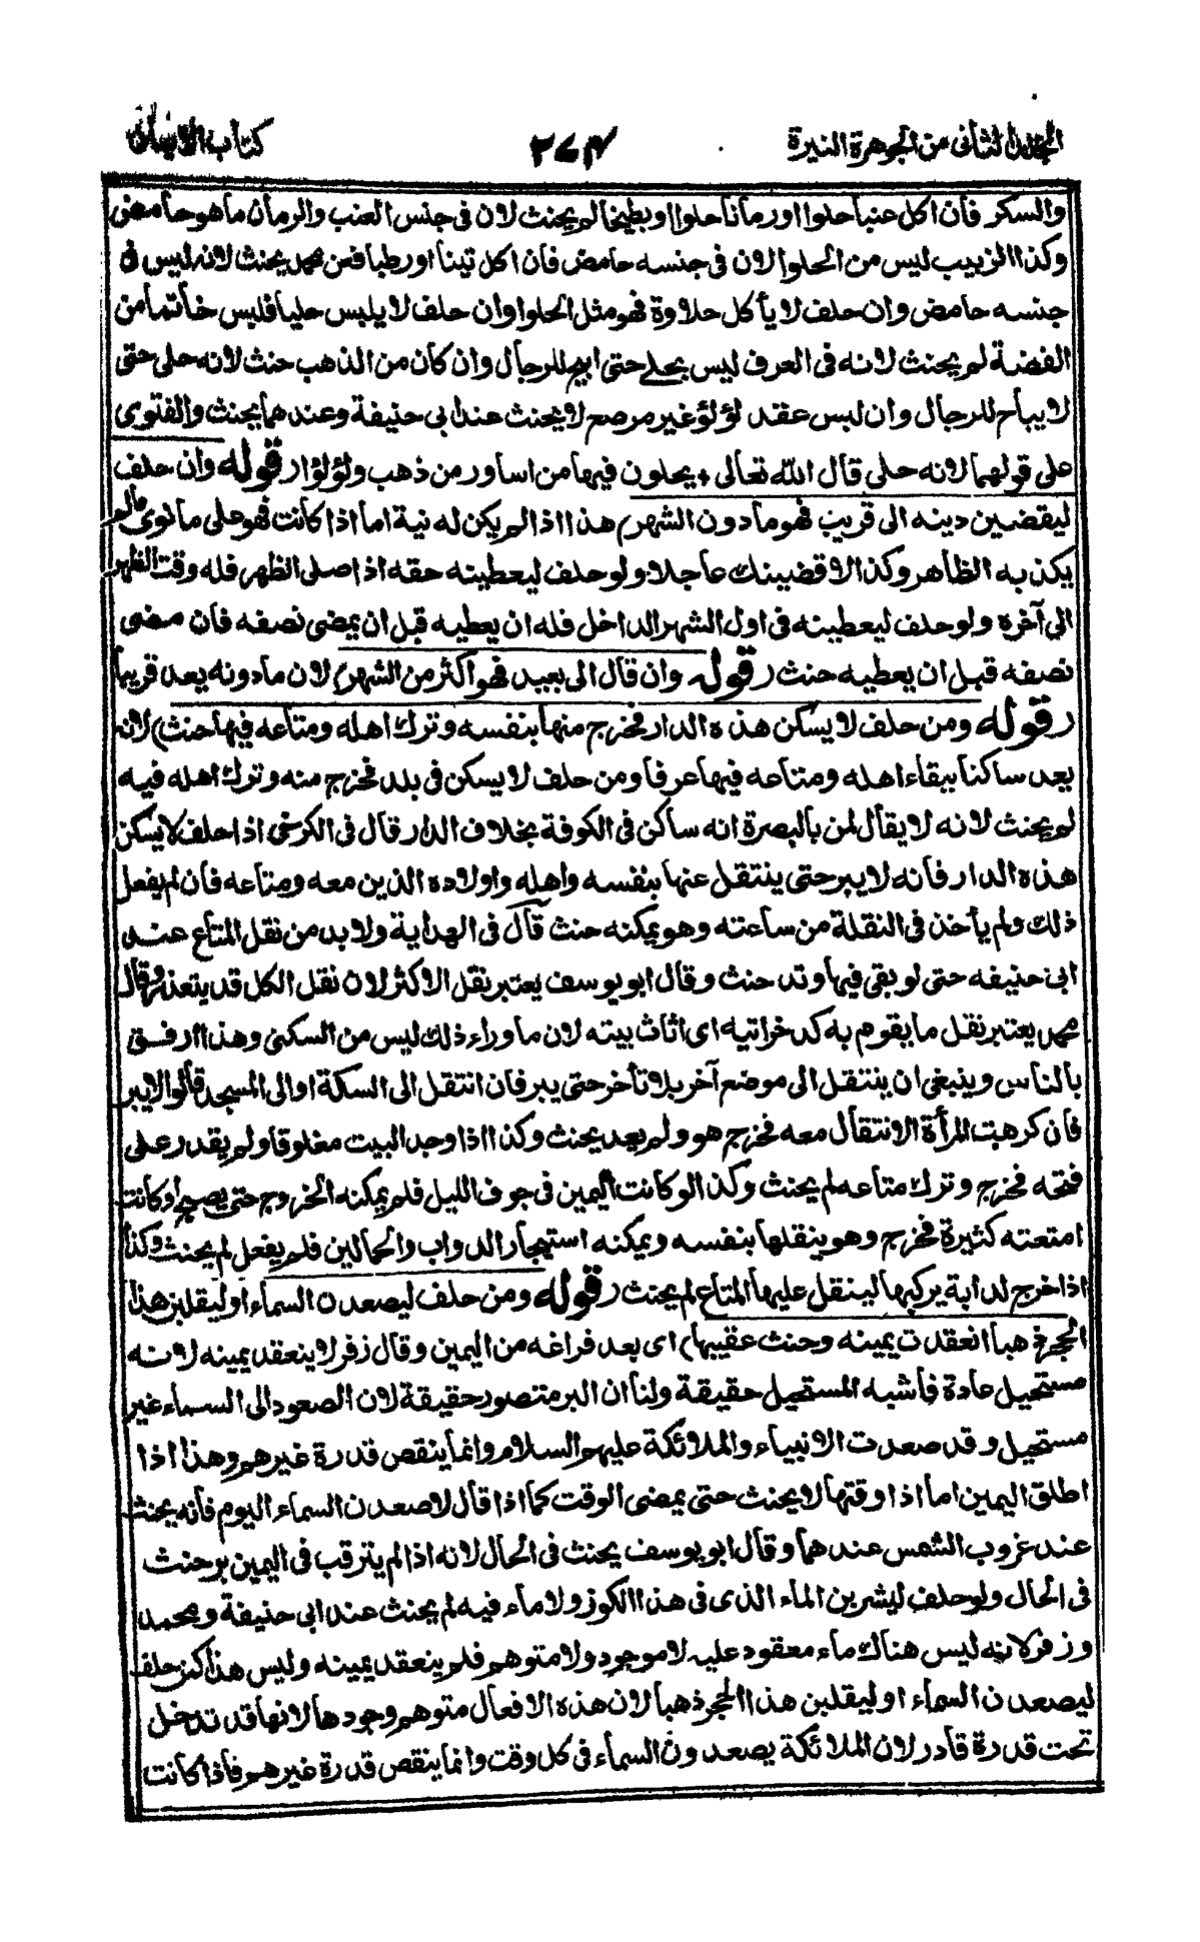 المجلد الثانى من الجوهرة النيرة
٢٧٤
كتاب الايمان
والسكر فان اكل عنبا حلوا او رمانا حلوا او بطيخا لم يحنث لان فى جنس العنب والرمان ما هو حامض
وكذا الزبيب ليس من الحلوا لان فى جنسه حامض فان اكل تينا او رطبا فعن محمد يحنث لانه ليس فى
جنسه حامض وان حلف لا يأكل حلاوة فهو مثل الحلوا وان حلف لا يلبس حليا فلبس خاتما من
الفضة لم يحنث لانه فى العرف ليس بحلى حتى ابيح للرجال وان كان من الذهب حنث لانه حلى حتى
لا يباح للرجال وان لبس عقد لؤلؤ غير مرصع لا يحنث عند ابى حنيفة وعندهما يحنث والفتوى
على قولهما لانه حلى قال الله تعالى + يحلون فيها من اساور من ذهب ولؤلؤا ر قوله وان حلف
ليقضين دينه الى قريب فهو ما دون الشهر) هذا اذا لم يكن له نية اما اذا كانت فهو على ما نوى مالم
يكذبه الظاهر وكذا لاقضينك عاجلا ولو حلف ليعطينه حقه اذا صلى الظهر فله وقت الظهر
الى آخره ولو حلف ليعطينه فى اول الشهر الداخل فله ان يعطيه قبل ان يمضى نصفه فان مضى
نصفه قبل ان يعطيه حنث ر قوله وان قال الى بعيد فهو اكثر من الشهر) لان ما دونه يعد قريبا
ر قوله ومن حلف لا يسكن هذه الدار فخرج منها بنفسه وترك اهله ومتاعه فيها حنث) لانه
يعد ساكنا ببقاء اهله ومتاعه فيها عرفا ومن حلف لا يسكن فى بلد فخرج منه وترك اهله فيه
لم يحنث لانه لا يقال لمن بالبصرة انه ساكن فى الكوفة بخلاف الدار قال فى الكرخى اذا حلف لا يسكن
هذه الدار فانه لا يبر حتى ينتقل عنها بنفسه واهله واولاده الذين معه ومتاعه فان لم يفعل
ذلك ولم يأخذ فى النقلة من ساعته وهو يمكنه حنث قال فى الهداية ولابد من نقل المتاع عند
ابى حنيفه حتى لو بقى فيها وتد حنث وقال ابو يوسف يعتبر نقل الاكثر لان نقل الكل قد يتعذر وقال
محمد يعتبر نقل ما يقوم به كدخراتيه اى اثاث بيته لان ما وراء ذلك ليس من السكنى وهذا ارفق
بالناس وينبغى ان ينتقل الى موضع آخر بلا تأخر حتى يبر فان انتقل الى السكة او الى المسجد قالوا لا يبر
فان كرهت المرأة الانتقال معه فخرج هو ولم يعد يحنث وكذا اذا وجد البيت مغلوقا ولم يقدر على
فتحه فخرج وترك متاعه لم يحنث وكذا لو كانت اليمين فى جوف الليل فلم يمكنه الخروج حتى يصبح او كانت
امتعته كثيرة فخرج وهو ينقلها بنفسه ويمكنه استيجار الدواب والحمالين فلم يفعل لم يحنث وكذا
اذا خرج لدابة يركبها لينقل عليها المتاع لم يحنث ر قوله ومن حلف ليصعدن السماء او ليقلبن هذا
الحجر ذهبا انعقدت يمينه وحنث عقيبها) اى بعد فراغه من اليمين وقال زفر لا ينعقد يمينه لانه
مستحيل عادة فاشبه المستحيل حقيقة ولنا ان البر متصور حقيقة لان الصعود الى السماء غير
مستحيل وقد صعدت الانبياء والملائكة عليهم السلام وانما ينقص قدرة غيرهم وهذا اذا
اطلق اليمين اما اذا وقتها لا يحنث حتى يمضى الوقت كما اذا قال لاصعدن السماء اليوم فانه يحنث
عند غروب الشمس عندهما وقال ابو يوسف يحنث فى الحال لانه اذا لم يترقب فى اليمين بر حنث
فى الحال ولو حلف ليشربن الماء الذى فى هذا الكوز ولا ماء فيه لم يحنث عند ابى حنيفة ومحمد
وزفر لانه ليس هناك ماء معقود عليه لا موجود ولا متوهم فلم ينعقد يمينه وليس هذا كمن حلف
ليصعدن السماء او ليقلبن هذا الحجر ذهبا لان هذه الافعال متوهم وجودها لانها قد تدخل
تحت قدرة قادر لان الملائكة يصعدون السماء فى كل وقت وانما ينقص قدرة غيرهم فاذا كانت